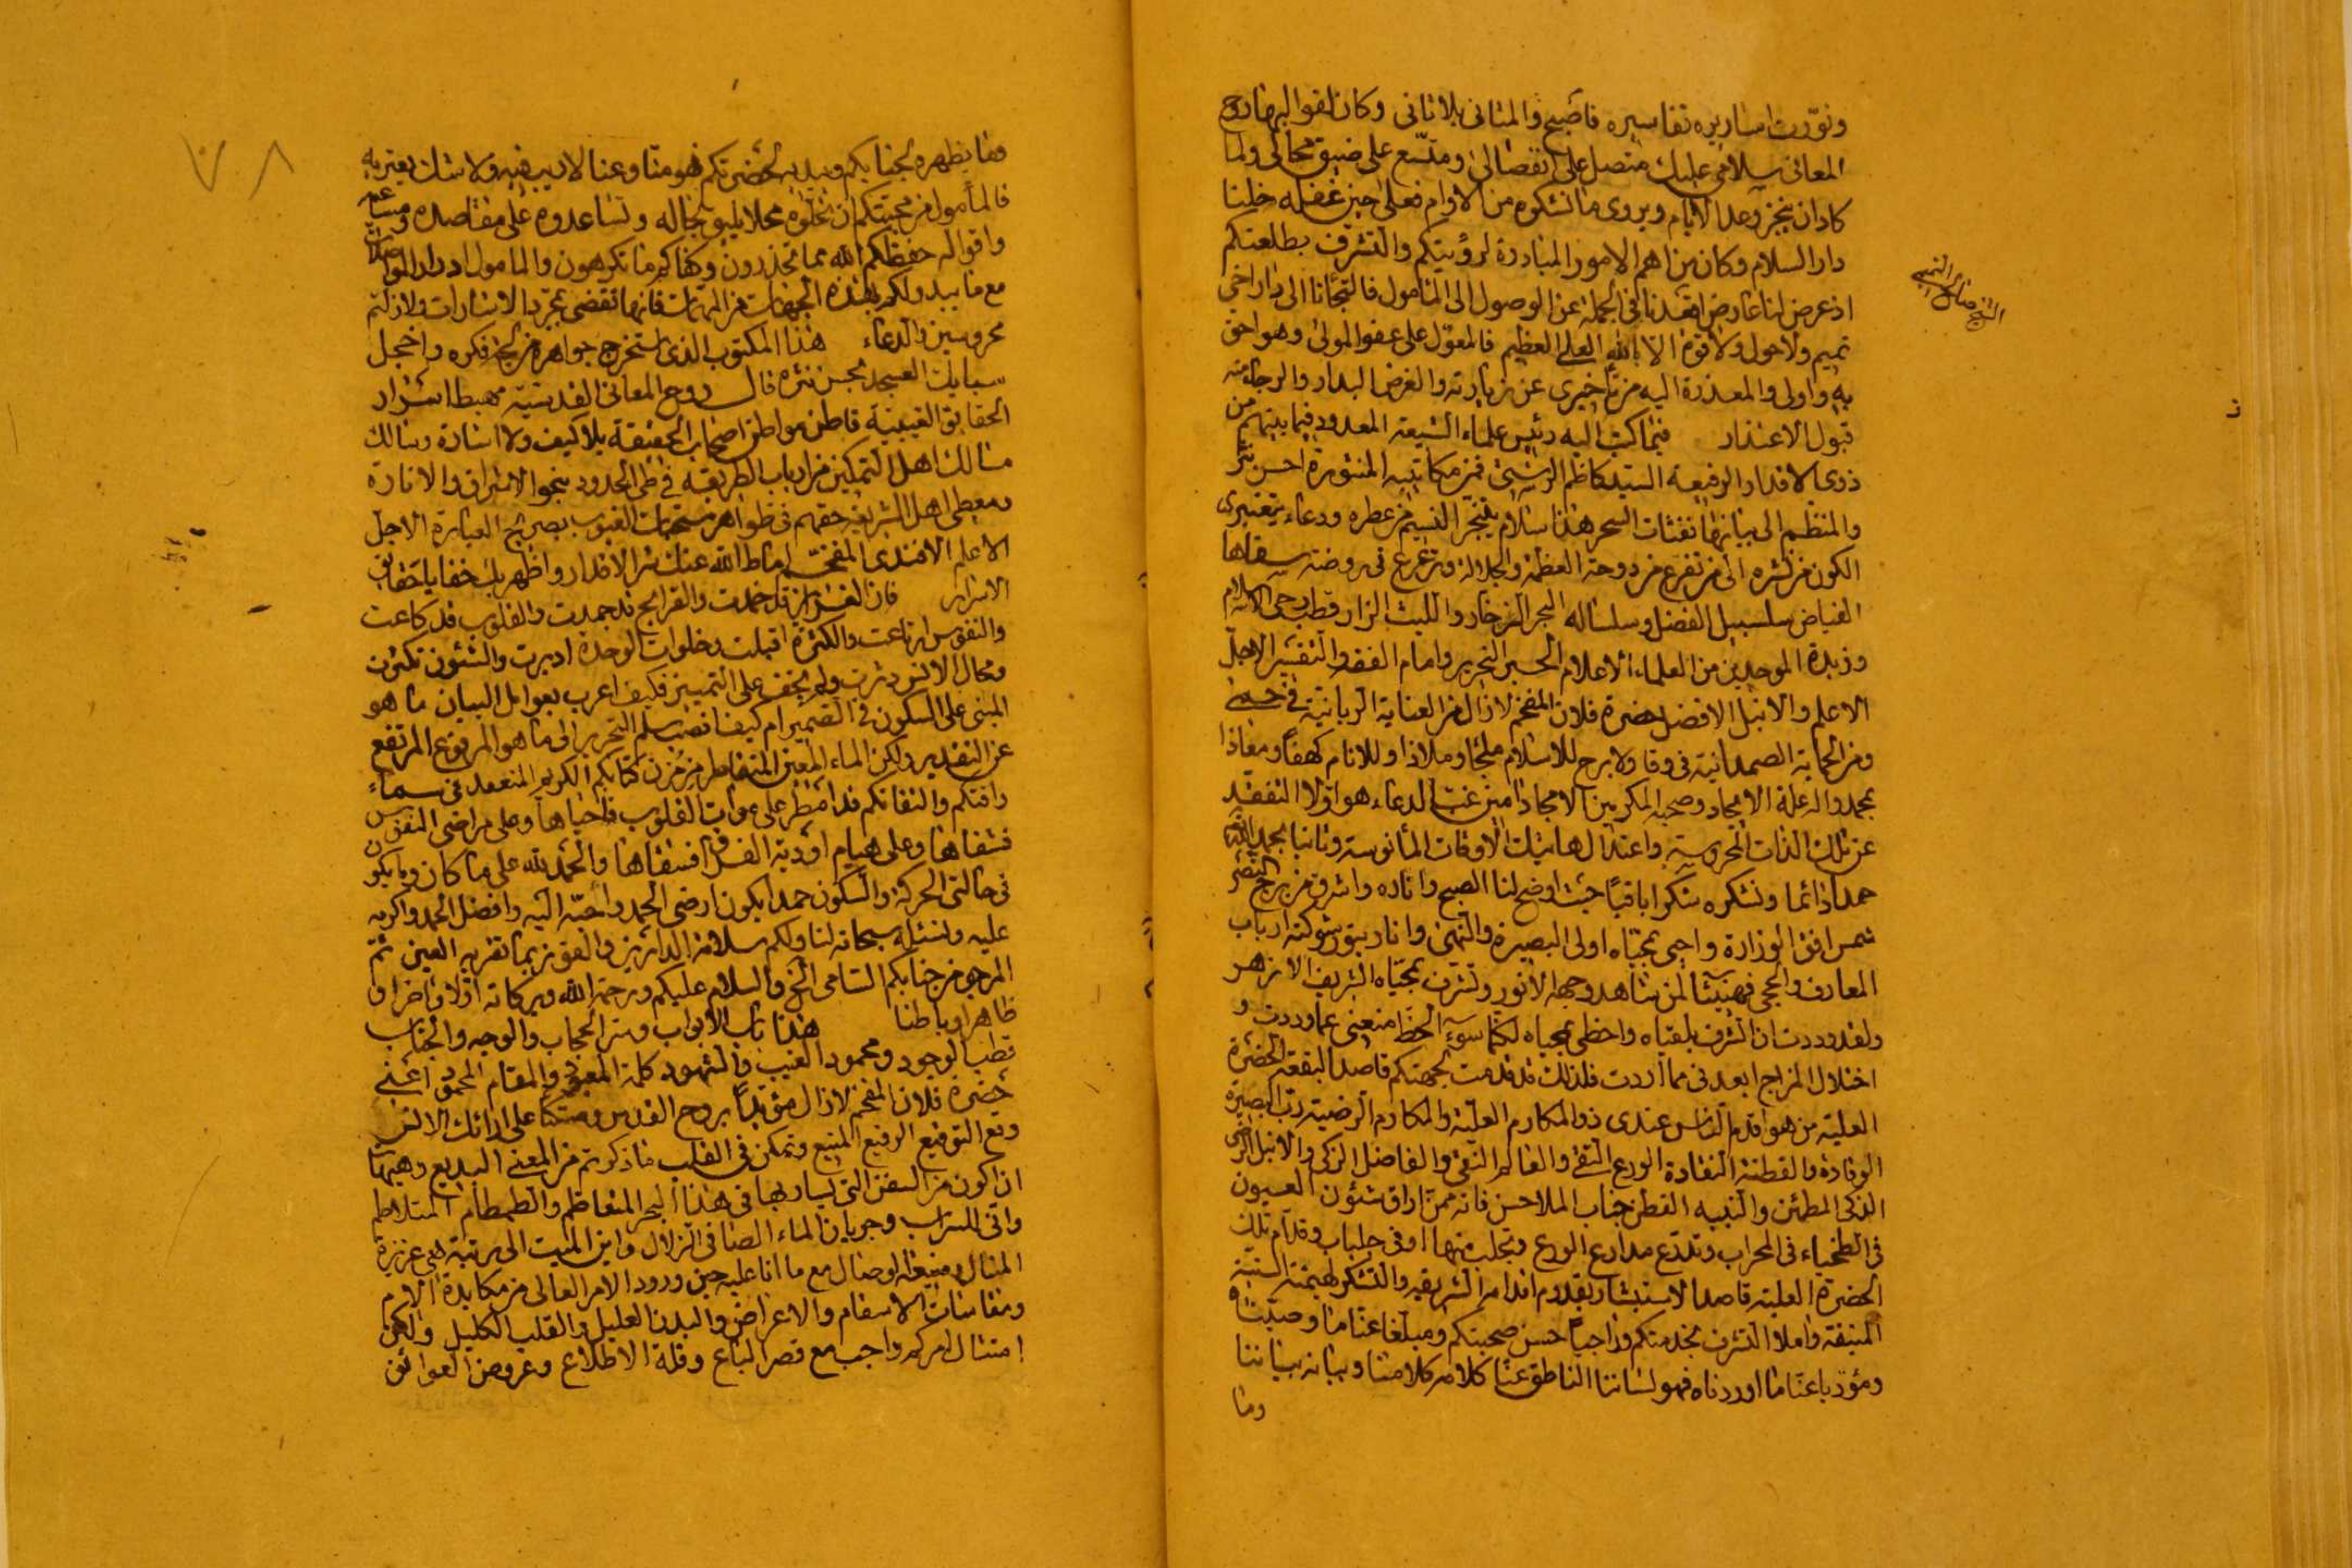 ونوّرت اسارير نفاسيره فاصبح والمثانى بلا ثانى وكان لفواليها روح
المعانى سلامى عليك متصل على انفصالى ومتسع على ضيق مجالى ولما
كاد ان ينجز وعد الايام ويروى ما نشكوه من الاوام فعلى حين غفلة دخلنا
دار السلام وكان من اهم الامور المبادرة لرؤيتكم والتشرف بطلعتكم
اذ عرض لنا عارض اقعدنا فى الجملة عن الوصول الى المأمول فالتجأنا الى دار اخى
تميم ولا حول ولا قوة الا بالله العلى العظيم فالمعول على عفو المولى وهو احق
به واولى والمعذرة اليه من تأخيرى عن زيارته والغرض البدار والرجاء منه
قبول الاعتذار فما كتب اليه رئيس علماء الشيعة المعدود فيما بينهم من
ذوى الاقدار الرفيعة السيد كاظم الرشتى فمن مكاتيبه المنثورة احسن نثر
والمنظم الى بيانها نفثات السحر هذا سلام يتفجر النسيم من عطره ودعاء
الكون من نشره الى من تفرع من دوحة العظمة والجلالة وترعرع فى روضة سقاها
الفياض سلسبيل الفضل وسلساله البحر الزخار والليث الزار قطب رحى الاسلام
وزبدة الموحدين من العلماء الاعلام الحبر النحرير وامام الفقه والتفسير الاجل
الاعلم والانبل الافضل حضرة فلان المفخم لا زال من العناية الربانية فى حمى
ومن الحماية الصمدانية فى وقا ولا برح للاسلام ملجأ وملاذا وللانام كهفا ومعاذا
بمحمد واله علة الايجاد وصحبه المكرمين الامجاد امين غب الدعاء هو اولا التفقد
عن تلك الذات المحروسة واعتدال هاتيك الاوقات المأنوسة وثانيا نحمد الله
حمدا دائما ونشكره شكرا باقيا حيث اوضح لنا الصبح واناره واشرق من برج النصر
شمس افق الوزارة واحيى بمحياه اولى البصيرة والنهى وانار بنور شوكته ارباب
المعارف والحجى فهنيئا لمن شاهد وجهه الانور وتشرف بمحياه الشريف الازهر
ولقد وددت ان اتشرف بلقياه واحظى بمحياه لكنما سوء الحظ منعنى عما وددت و
اختلال المزاج ابعدنى مما اردت فلذلك قد قدمت لجهتكم قاصدا لبقعة الحضرة
العلية من هو اقدم الناس عندى ذو المكارم العلية والمكارم الرضية رب البصيرة
الوقادة والفطنة النقادة الورع التقى والعالم النقى والفاضل الزكى والانبل الرضى
الذكى المطمئن والنبيه الفطن جناب الملا حسن فانه ممن اراق شئون العيون
فى الظلماء فى المحراب وتدرع مدارع الورع وتجلبب منها اوفى جلباب وقدم تلك
الحضرة العلية قاصدا الاستبشار بقدوم اقدامه الشريفه والتشكر لهمته السنية
المنيفة واملا التشرف بخدمتكم وراجيا حسن صحبتكم ومبلغا عنا ما وصيناه
ومؤديا عنا ما اوردناه فهو لساننا الناطق عنا كلامه كلامنا وبيانه بياننا
وما
وما يظهره لجنابكم ويبديه لحضرتكم فهو منا وعنا لا ريب فيه ولا شك يعتريه
فالمأمول من محبتكم ان تحلوه محلا يليق بحاله وتساعدوه على مقاصده ومساعيه
واقواله حفظكم الله مما تحذرون وكفاكم ما تكرهون والمامول ادرار المواصلات
مع ما يبدو لكم بهذه الجهات من المهمات فانها تقضى بمجرد الاشارات ولا زلتم
محروسين والدعاء هذا المكتوب الذى استخرج جواهره من لجج فكره واخجل
سبايك العسجد بحسن نثره قال روح المعانى القدسية مهبط اسرار
الحقايق الغيبية قاطن مواطن اصحاب الحقيقة بلا كيف ولا اشارة وسالك
مسالك اهل التمكين من ارباب الطريقة فى طى الحدود بنحو الاشراق والانارة
ومعطى اهل الشريعة حقهم فى ظواهر الغيوب بصريح العبارة الاجل
الاعلم الافندى المفخم اماط الله عنك شر الاقدار واظهر بك خفايا حقايق
الاسرار فان الغرايز قد خمدت والقرايح قد جمدت والقلوب قد كاعت
والنفوس ارتاعت والكثرة اقبلت وخلوات الوحدة ادبرت والشئون تكثرت
ومحال الانس دثرت ولم يخف على التمييز فكيف اعرب بعوامل البيان ما هو
المبنى على السكون فى الضمير ام كيف انصب سلم التحرير الى ما هو المرفوع المرتفع
عن التقدير ولكن الماء المعين المتقاطر من مزن كتابكم الكريم المنعقد فى سماء
رافتكم والتفاتكم قد امطر على موات القلوب فاحياها وعلى مراضى النفوس
فشفاها وعلى هيام اودية الفسق فسقاها والحمد لله على ما كان وما يكون
فى حالتى الحركة والسكون حمدا يكون ارضى الحمد واحبه اليه وافضل الحمد واكرمه
عليه ونسئله سبحانه لنا ولكم سلامة الدارين والفوز بما تقر به العين ثم
المرجو من جنابكم السامى الخ والسلام عليكم ورحمة الله وبركاته اولا واخرا و
ظاهرا وباطنا هذا باب الابواب وستر الحجاب والوجه والجناب
قطب الوجود ومحمود الغيب والشهود كلمة المعبود والمقام المحمود اعنى
حضرة فلان المفخم لا زال مؤيدا بروح القدس ومتكئا على ارائك الانس
وقع التوقيع الرفيع المنيع وتمكن فى القلب ما ذكرتم من المعنى البديع وهيهات
ان اكون من السفن التى يسار بها فى هذا البحر المتعاظم والطمطام المتلاطم
وانى للسراب وجريان الماء الصافى الزلال واين الميت الى مرتبة هى عزيزة
المنال ومنيعة الوصال مع ما انا عليه حين ورود الامر العالى من مكابدة الالام
ومقاسات الاسقام والاعراض والبدن العليل والقلب الكليل ولكن
امتثال امركم واجب مع قصر الباع وقلة الاطلاع وعروض العوائق
٧٨